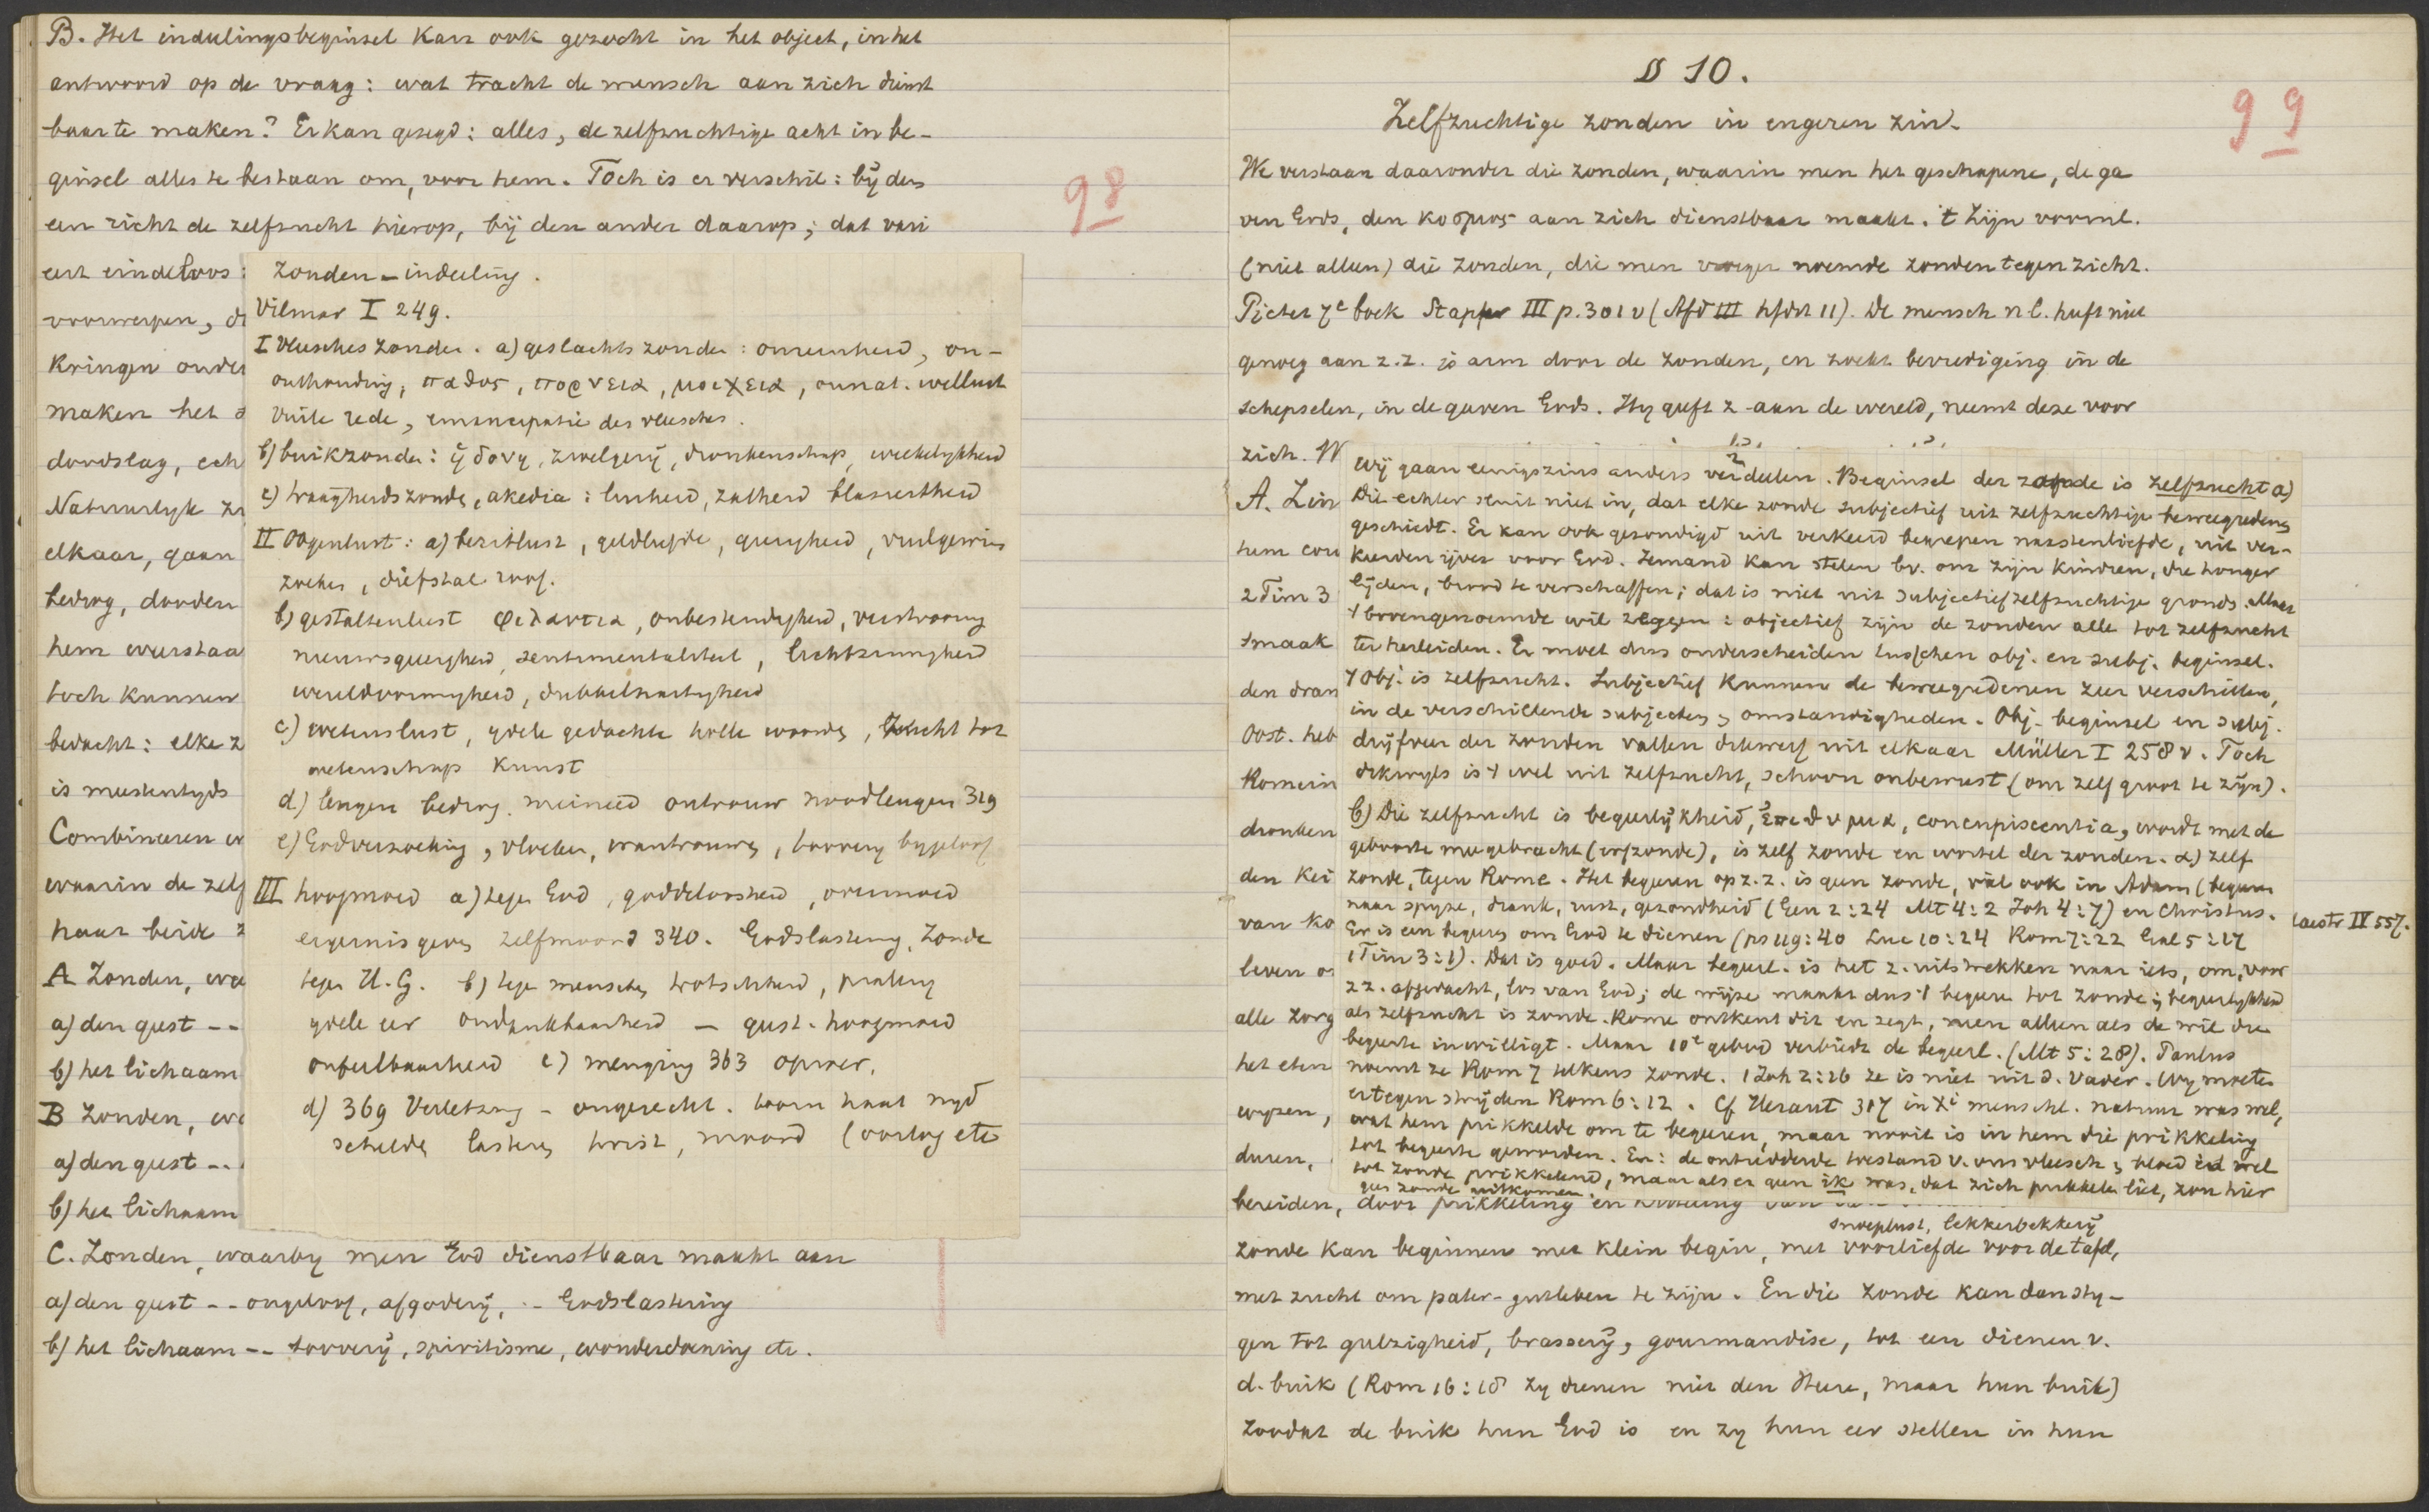 B. Het indeelingsbeginsel kan ook gezocht in het object, in het
antwoord op de vraag: wat tracht de mensch aan zich dienst
baar te maken? Er kan gezegd: alles, de zelfzuchtige acht in be-
ginsel alles te bestaan om, voor hem. Toch is er verschil: bij den
een richt de zelfzucht hierop, bij den ander daarop; dat vari
eert eindeloos:
voorwerpen, di
Kringen onder
maken het d
doodslag, ech
Natuurlyk zu
elkaar, gaan
bedrog, dooden
hem weerstaa
toch kunnen
bedacht: elke z
is meestentyds
Combineeren w
waarin de zelf
haar beide z
A Zonden, wa
a) den geest --
b) het lichaam
B Zonden, wa
a) den geest --
b) het lichaam
C. Zonden, waarby men God dienstbaar maakt aan
a) den geest -- ongeloof, afgodery, -- Godslastering
b) het lichaam -- toovery, spiritisme, wonderdoening etc.
98
Zonden-indeeling.
Vilmar I 249.
I vleesches zonden. a) geslachts zonden: onreinheid, on-
onthouding, παθος, πορνεια, μοιχεια, onnat. wellust
vuile rede, emancipatie des vleesches.
b) buikzonden: ηδονη, zwelgerij, dronkenschap, weekelykheid
c) traagheidszonde, akedia: luiheid, zatheid blasiertheid
II Oogenlust: a) bezitlust, geldliefde, gierigheid, vuilgewin
zoeken, diefstal roof.
b) gestaltenlust φιλαυτια, onbestendigheid, verstrooiing
nieuwsgierigheid, sentimentaliteit, lichtzinnigheid
wereldvormigheid, dubbelhartigheid
c) wetenslust, ydele gedachte holle woorden, zucht tot
wetenschap kunst
d) leugen bedrog. meineed ontrouw noodleugen 319
e) Godverzoeking, vloeken, wantrouwen, toovery bygeloof
III hoogmoed a) tegen God, goddeloosheid, overmoed
ergernis geven zelfmoord 340. Godslastering, zonde
tegen H. G. b) tegen menschen trotschheid, praling
ydele eer ondankbaarheid - geest. hoogmoed
onfeilbaarheid c) menging 363 oproer.
d) 369 Verletzung - ongerecht. toorn haat nyd
schelden lasteren twist, moord (oorlog etc
99
§ 10.
Zelfzuchtige zonden in engeren zin.
We verstaan daaronder die zonden, waarin men het geschapene, de ga
ven Gods, den κοσμος aan zich dienstbaar maakt. 't Zijn voornl.
(niet alleen) die zonden, die men vroeger noemde zonden tegen zicht.
Pictet 7e boek Stapfer III p. 301 v (Afd III hfdst 11). De mensch nl. heeft niet
genoeg aan z.z. is arm door de zonden, en zoekt bevrediging in de
schepselen, in de gaven Gods. Hy geeft z aan de wereld, neemt deze voor
zich. W
A. Zin
hem con
2 Tim 3
smaak
den dran
Oost. heb
Romein
dronken
den Kei
van Ko
leven o
alle zorg
het eten
wyzen,
duren,
bereiden, door prikkeling en
snoeplust, lekkerbekkerij
zonde kan beginnen met klein begin, met voorliefde voor de tafel,
met zucht om pater-goedleben te zijn. En die zonde kan dan sty-
gen tot gulzigheid, brassery, gourmandise, tot een dienen v.
d. buik (Rom 16:18 zy dienen niet den Heere, maar hun buik)
zoodat de buik hun God is en zy hun eer stellen in hun
Wij gaan eenigszins anders verdeelen. Beginsel der zonde is zelfzucht a)
Dit echter sluit niet in, dat elke zonde subjectief uit zelfzuchtige beweegredens
geschiedt. Er kan ook gezondigd uit verkeerd begrepen naastenliefde, uit ver-
keerden ijver voor God. Iemand kan stelen bv. om zijn kindren, die honger
lijden, brood te verschaffen; dat is niet uit subjectief zelfzuchtige gronds. Maar
't bovengenoemde wil zeggen: objectief zijn de zonden alle tot zelfzucht
te herleiden. Er moet dus onderscheiden tusschen obj. en subj. beginsel.
't Obj. is zelfzucht. Subjectief kunnen de beweegredenen zeer verschillen,
in de verschillende subjecten, omstandigheden. Obj. beginsel en subj.
drijfveer der zonden vallen dikwerf uit elkaar Müller I 258 v. Toch
dikwyls is 't wel uit zelfzucht, schoon onbewust (om zelf groot te zijn).
b) Die zelfzucht is begeerlijkheid, ἐπιθυμια, concupiscentia, wordt met de
geboorte meegebracht (erfzonde), is zelf zonde en wortel der zonden. α) zelf
zonde, tegen Rome. Het begeeren op z.z. is geen zonde, viel ook in Adam (begeeren
naar spyze, drank, rust, gezondheid (Gen 2:24 Mt 4:2 Joh 4:7) en Christus.
Er is een begeeren om God te dienen (ps 119:40 Luc 10:24 Rom 7:22 Gal 5:17
1 Tim 3:1). Dat is goed. Maar begeerl. is het z. uitstrekken naar iets, om, voor
z z. afgedacht, los van God; de wijze maakt dus 't begeeren tot zonde; begeerlykheid
als zelfzucht is zonde. Rome ontkent dit en zegt, neen alleen als de wil die
begeerte inwilligt. Maar 10e gebod verbiedt de begeerl. (Mt 5:28). Paulus
noemt ze Rom 7 telkens zonde. 1 Joh 2:16 ze is niet uit d. Vader. Wy moeten
er tegen strijden Rom 6:12. Cf Heraut 317 in Xi menschl. natuur was wel,
wat hem prikkelde om te begeeren, maar nooit is in hem die prikkeling
tot begeerte geworden. En: de ontredderde toestand v. ons vleesch & bloed is wel
tot zonde prikkelend, maar als er geen ik was, dat zich prikkelen liet, zou hier
geen zonde uitkomen.
Laestr IV 557.